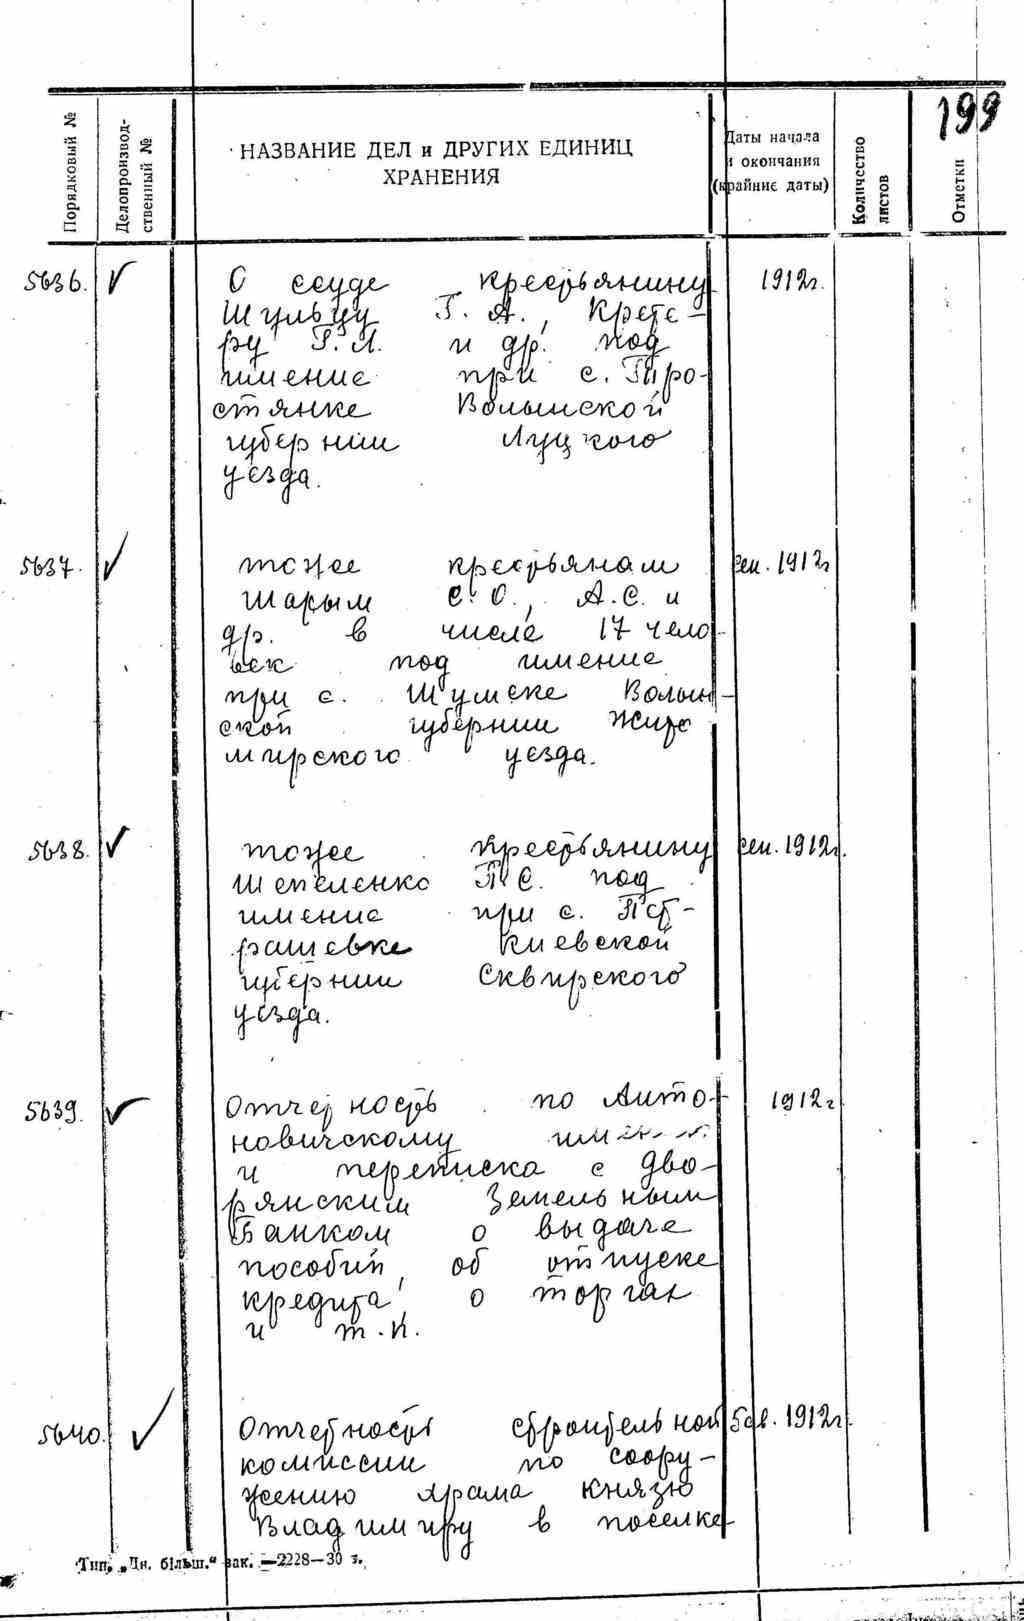 199
Порядковый №
Делопроизвод-
ственный №
НАЗВАНИЕ ДЕЛ и ДРУГИХ ЕДИНИЦ
ХРАНЕНИЯ
Даты начала
и окончания
(крайние даты)
Количество
листов
Отметки
5636. О ссуде крестьянину 1912г.
Шульцу Г. А., Крете-
ру Г. Л. и др. под
имение при с. Про-
стянке Волынской
губернии Луцкого
уезда.
5637. тоже крестьянам сен. 1912г
Шарым С. О., А. С. и
др. в числе 17 чело-
век под имение
при с. Шумске Волын-
ской губернии Жито
мирского уезда.
5638. тоже крестьянину сен. 1912г.
Шепеленко П. С. под
имение при с. Пет-
рашевке Киевской
губернии Сквирского
уезда.
5639. Отчетность по Анто- 1912г
новичскому
и переписка с Дво-
рянским Земельным
Банком о выдаче
пособий, об отпуске
кредита, о торгах
и т. п.
5640. Отчетность строительной 1912г.
комиссии по соору-
жению храма князю
Владимиру в поселке
Тип. „Дн. більш.“ зак. —2228—30 г.